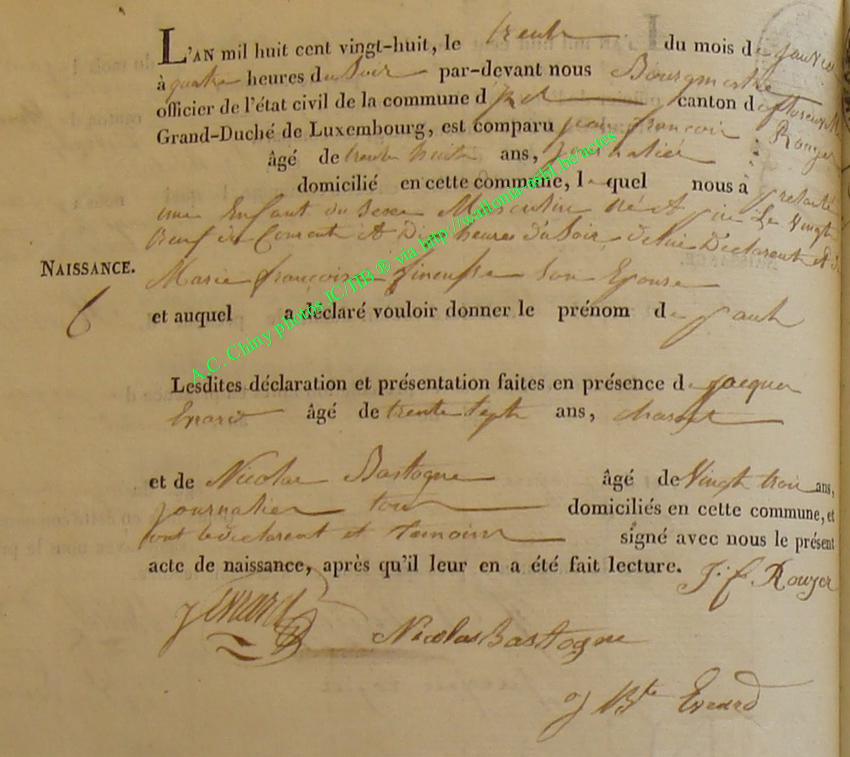 L'AN mil huit cent vingt-huit, le trente du mois de janvier
à quatre heures du Soir par-devant nous Bourgmestre
officier de l'état civil de la commune d' canton de florenville
Grand-Duché de Luxembourg, est comparu jean françois Rouger
âgé de trente huit ans, journalier
domicilié en cette commune, le quel nous à présenté
une Enfant du Sexe Masculin né à le Vingt
neuf du Courant à Dix heures du Soir de lui Déclarant et de
NAISSANCE. Marie françoise son Epouse
6 et auquel a déclaré vouloir donner le prénom de
Lesdites déclaration et présentation faites en présence de jacques
Evrard âgé de trente Sept ans,
et de Nicolas Bastogne âgé de Vingt trois ans,
journalier tous domiciliés en cette commune, et
ont le déclarant et temoins signé avec nous le présent
acte de naissance, après qu'il leur en a été fait lecture. J. f. Rouger
J Evrard
Nicolas Bastogne
J Bte Evrard
A.C. Chiny photos IC/TB ® via http://wallonia-asbl.be/actes